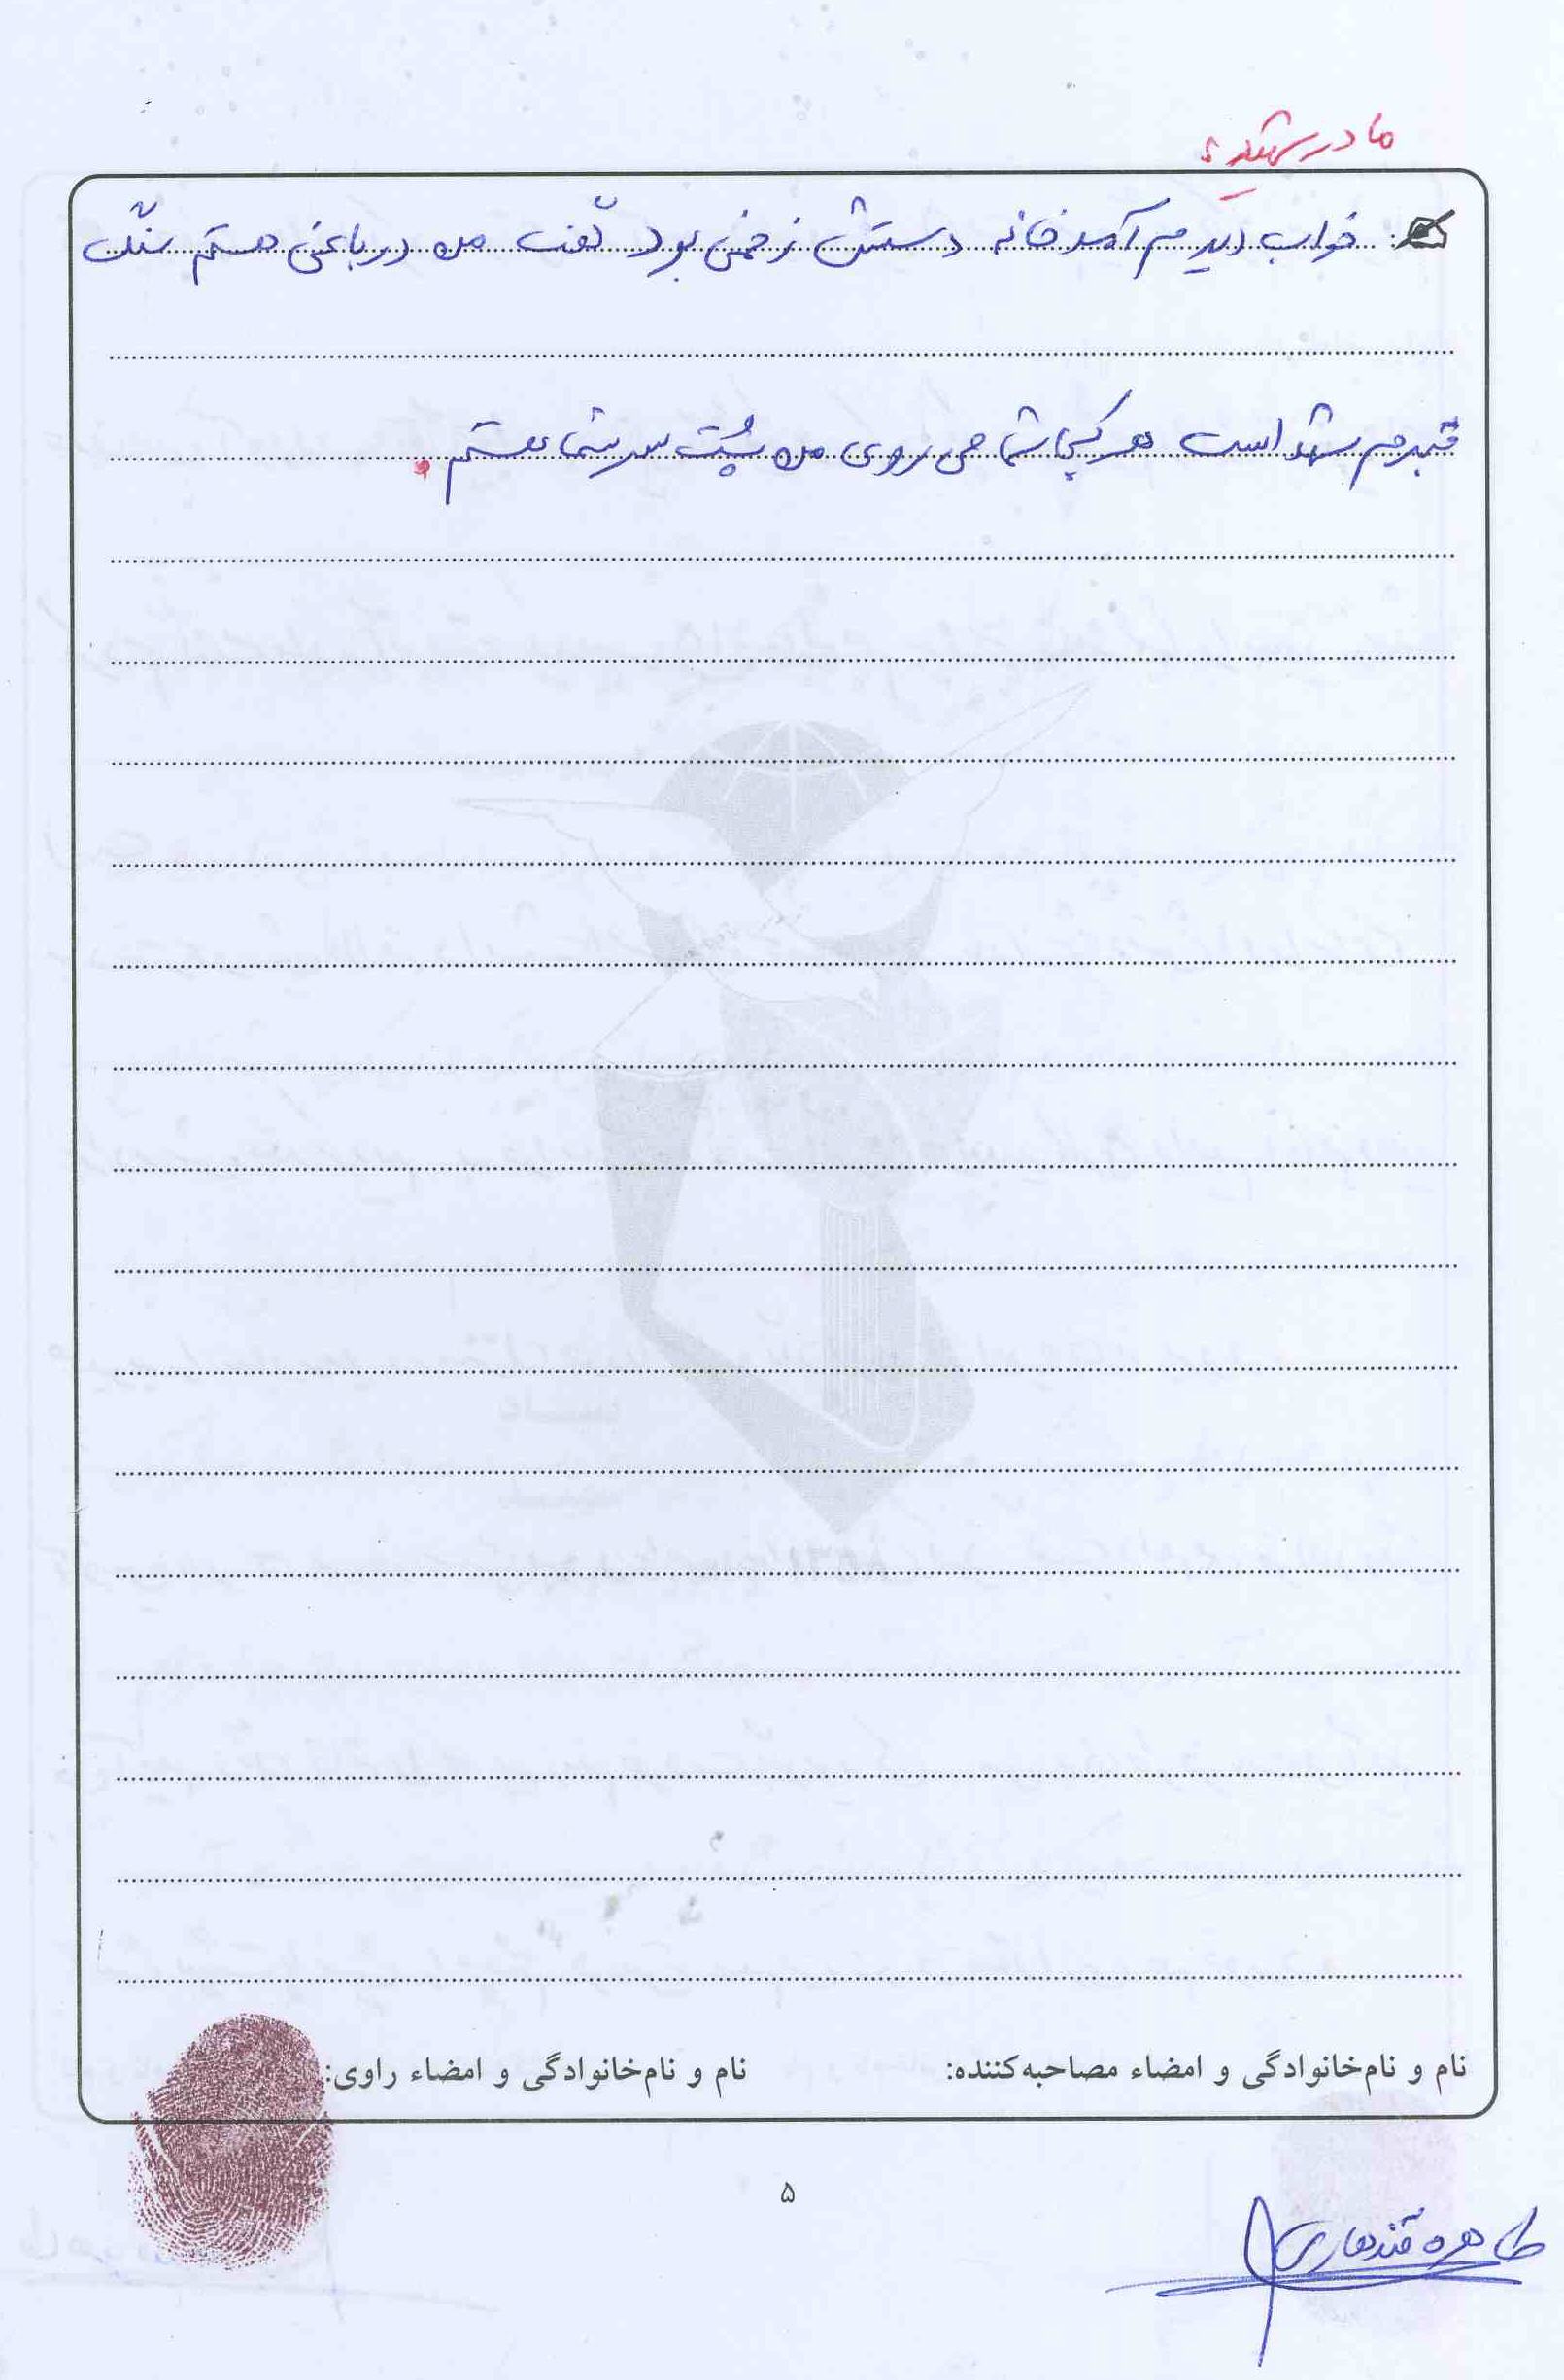 مادر شهید:
خواب دیدم آمد خانه دستش زخمی بود گفت من در باغی هستم سنگ
قبرم شهد است هر کجا شما می روی من پشت سر شما هستم.
نام و نام‌خانوادگی و امضاء مصاحبه‌کننده:
نام و نام‌خانوادگی و امضاء راوی:
۵
طاهره قندهاری